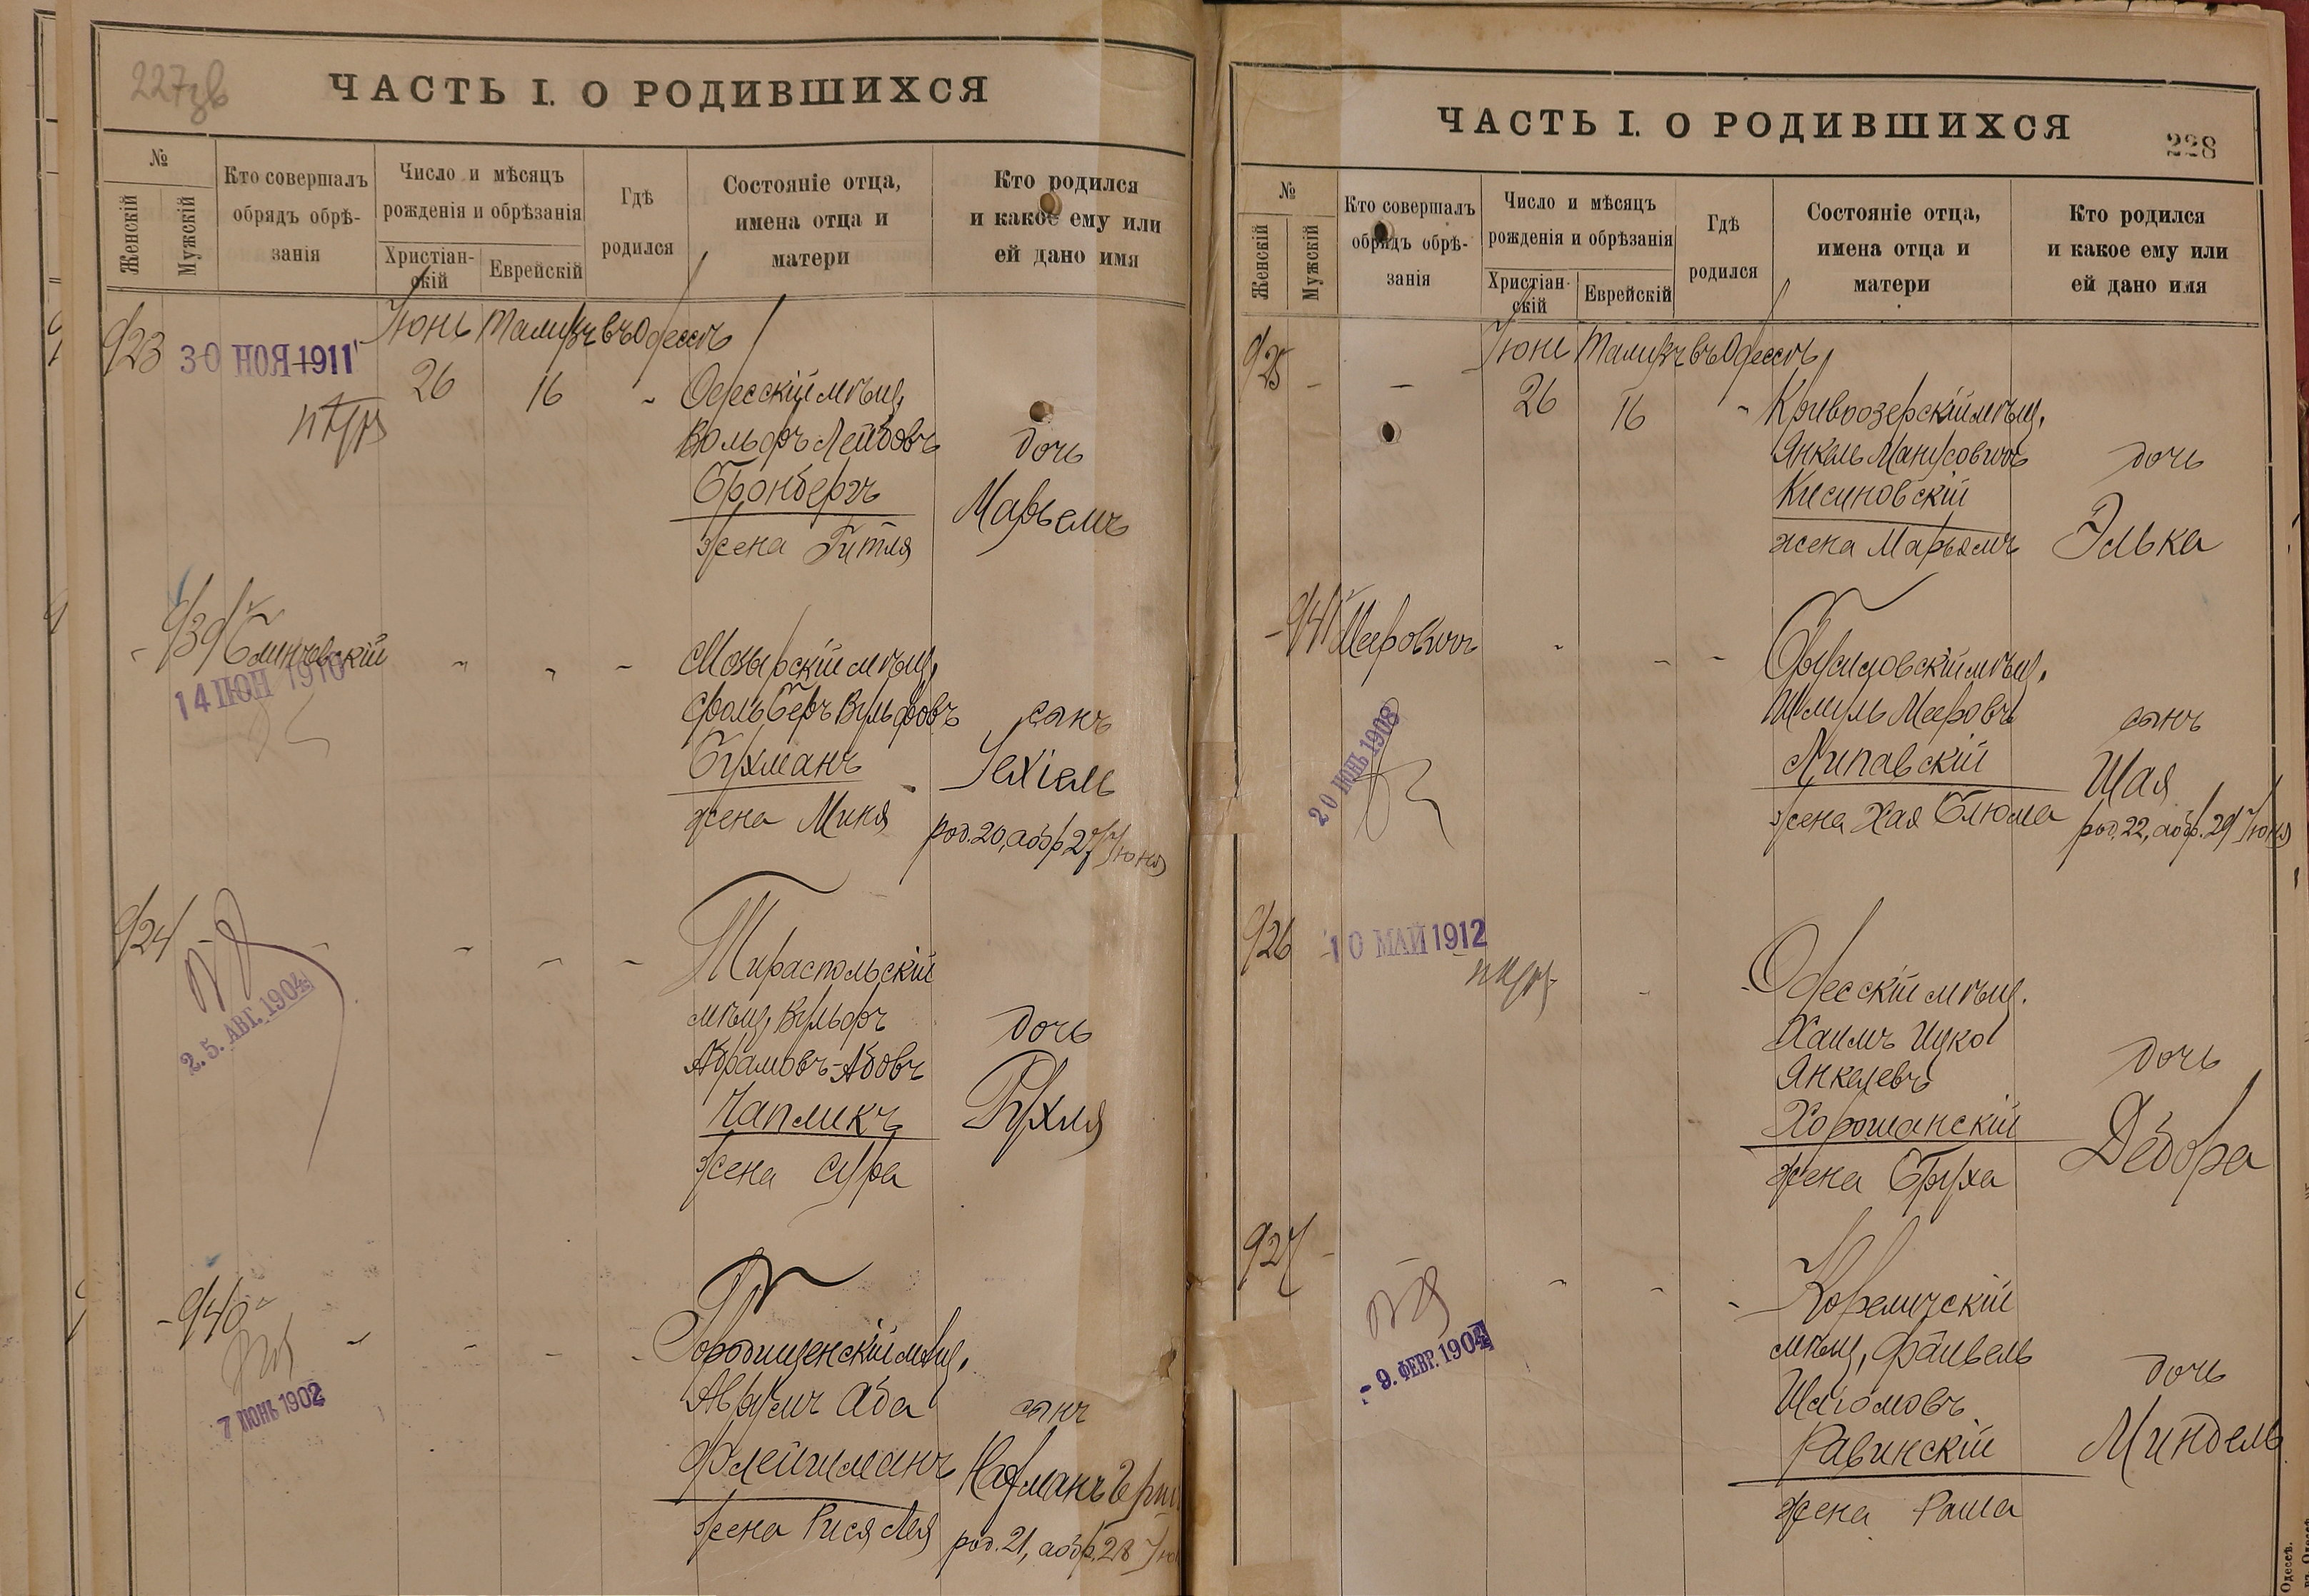 227 зв
ЧАСТЬ I. О РОДИВШИХСЯ
№
Женскій
Мужскій
Кто совершалъ
обрядъ обрѣ-
занія
Число и мѣсяцъ
рожденія и обрѣзанія
Христіан-
скій
Еврейскій
Гдѣ
родился
Состояніе отца,
имена отца и
матери
Кто родился
и какое ему или
ей дано имя
Іюнь Тамузъ въ Одессѣ
923 30 НОЯ 1911
26 16 - Одесскій мѣщ.
Вольфъ Лейбовъ дочь
Бронбергъ Марьемъ
жена Гитля
- 939 Блинчевскій
14 ИЮН 1910
Мозырскій мѣщ.
Фоль Беръ Вульфовъ сынъ
Бухманъ Іехіель
жена Миня
род. 20, обр. 27 Іюня
924 -
2.5. АВГ. 1904
Тираспольскій
мѣщ. Вульфъ дочь
Абрамовъ-Абовъ
Чапликъ Рухля
жена Сура
- 940
7 ИЮНЬ 1902
Городищенскій мѣщ.
Аврумъ Аба сынъ
Флейшманъ Нахманъ Герш
жена Рися Лея
род. 21, обр. 28 Ію
ЧАСТЬ I. О РОДИВШИХСЯ
228
№
Женскій
Мужскій
Кто совершалъ
обрядъ обрѣ-
занія
Число и мѣсяцъ
рожденія и обрѣзанія
Христіан-
скій
Еврейскій
Гдѣ
родился
Состояніе отца,
имена отца и
матери
Кто родился
и какое ему или
ей дано имя
Іюнь Тамузъ въ Одессѣ
925 - -
26 16 - Кривоозерскій мѣщ.
Янкель Манусовичъ дочь
Кисиновскій
жена Марьямъ Элька
- 941 Меировичъ
20 ИЮНЬ 1908
Брусиловскій мѣщ.
Шмуль Мееровъ сынъ
Липавскій Шая
жена Хая Блюма род. 22, обр. 29 Іюня
926 10 МАЙ 1912
Одесскій мѣщ.
Хаимъ Ицко
Янкелевъ дочь
Хорошанскій Дебора
жена Бруха
927 -
- 9. ФЕВР. 1904
Кореличскій
мѣщ. Файвель
Шаломовъ дочь
Равинскій Миндель
жена Раша
Одессѣ.